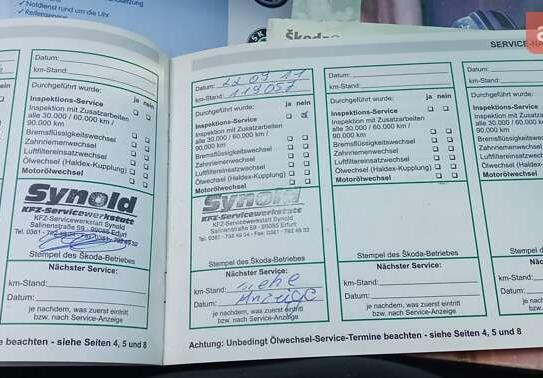 ✓ Notdienst rund um die Uhr
✓ Reifenservice
Škoda
SERVICE-NA
Datum:
km-Stand:
Durchgeführt wurde:
ja nein
Inspektions-Service
Inspektion mit Zusatzarbeiten
alle 30.000 / 60.000 km /
90.000 km
Bremsflüssigkeitswechsel
Zahnriemenwechsel
Luftfiltereinsatzwechsel
Ölwechsel (Haldex-Kupplung)
Motorölwechsel
Synold
KFZ-Servicewerkstatt
KFZ-Servicewerkstatt Synold
Salinenstraße 59 - 99085 Erfurt
Stempel des Škoda-Betriebes
Nächster Service:
km-Stand:
Datum:
je nachdem, was zuerst eintrifft
bzw. nach Service-Anzeige
e beachten - siehe Seiten 4, 5 und 8
Datum: 22 09 17
km-Stand: 119057
Durchgeführt wurde:
ja nein
Inspektions-Service
Inspektion mit Zusatzarbeiten
alle 30.000 / 60.000 km /
90.000 km
Bremsflüssigkeitswechsel
Zahnriemenwechsel
Luftfiltereinsatzwechsel
Ölwechsel (Haldex-Kupplung)
Motorölwechsel
Synold
KFZ-Servicewerkstatt
KFZ-Servicewerkstatt Synold
Salinenstraße 59 - 99085 Erfurt
Stempel des Škoda-Betriebes
Nächster Service:
km-Stand: siehe
Datum: Anzeige
je nachdem, was zuerst eintrifft
bzw. nach Service-Anzeige
Datum:
km-Stand:
Durchgeführt wurde:
ja nein
Inspektions-Service
Inspektion mit Zusatzarbeiten
alle 30.000 / 60.000 km /
90.000 km
Bremsflüssigkeitswechsel
Zahnriemenwechsel
Luftfiltereinsatzwechsel
Ölwechsel (Haldex-Kupplung)
Motorölwechsel
Stempel des Škoda-Betriebes
Nächster Service:
km-Stand:
Datum:
je nachdem, was zuerst eintrifft
bzw. nach Service-Anzeige
Datum:
km-Stand:
Durchgeführt wurde:
Inspektions-Service
Inspektion mit Zusatz
alle 30.000 / 60.000
90.000 km
Bremsflüssigkeitswe
Zahnriemenwechsel
Luftfiltereinsatzwech
Ölwechsel (Haldex-K
Motorölwechsel
Stempel des Šk
Näch
km-Stand:
Datum:
je nachdem,
bzw. nac
Achtung: Unbedingt Ölwechsel-Service-Termine beachten - siehe Seiten 4, 5 und 8